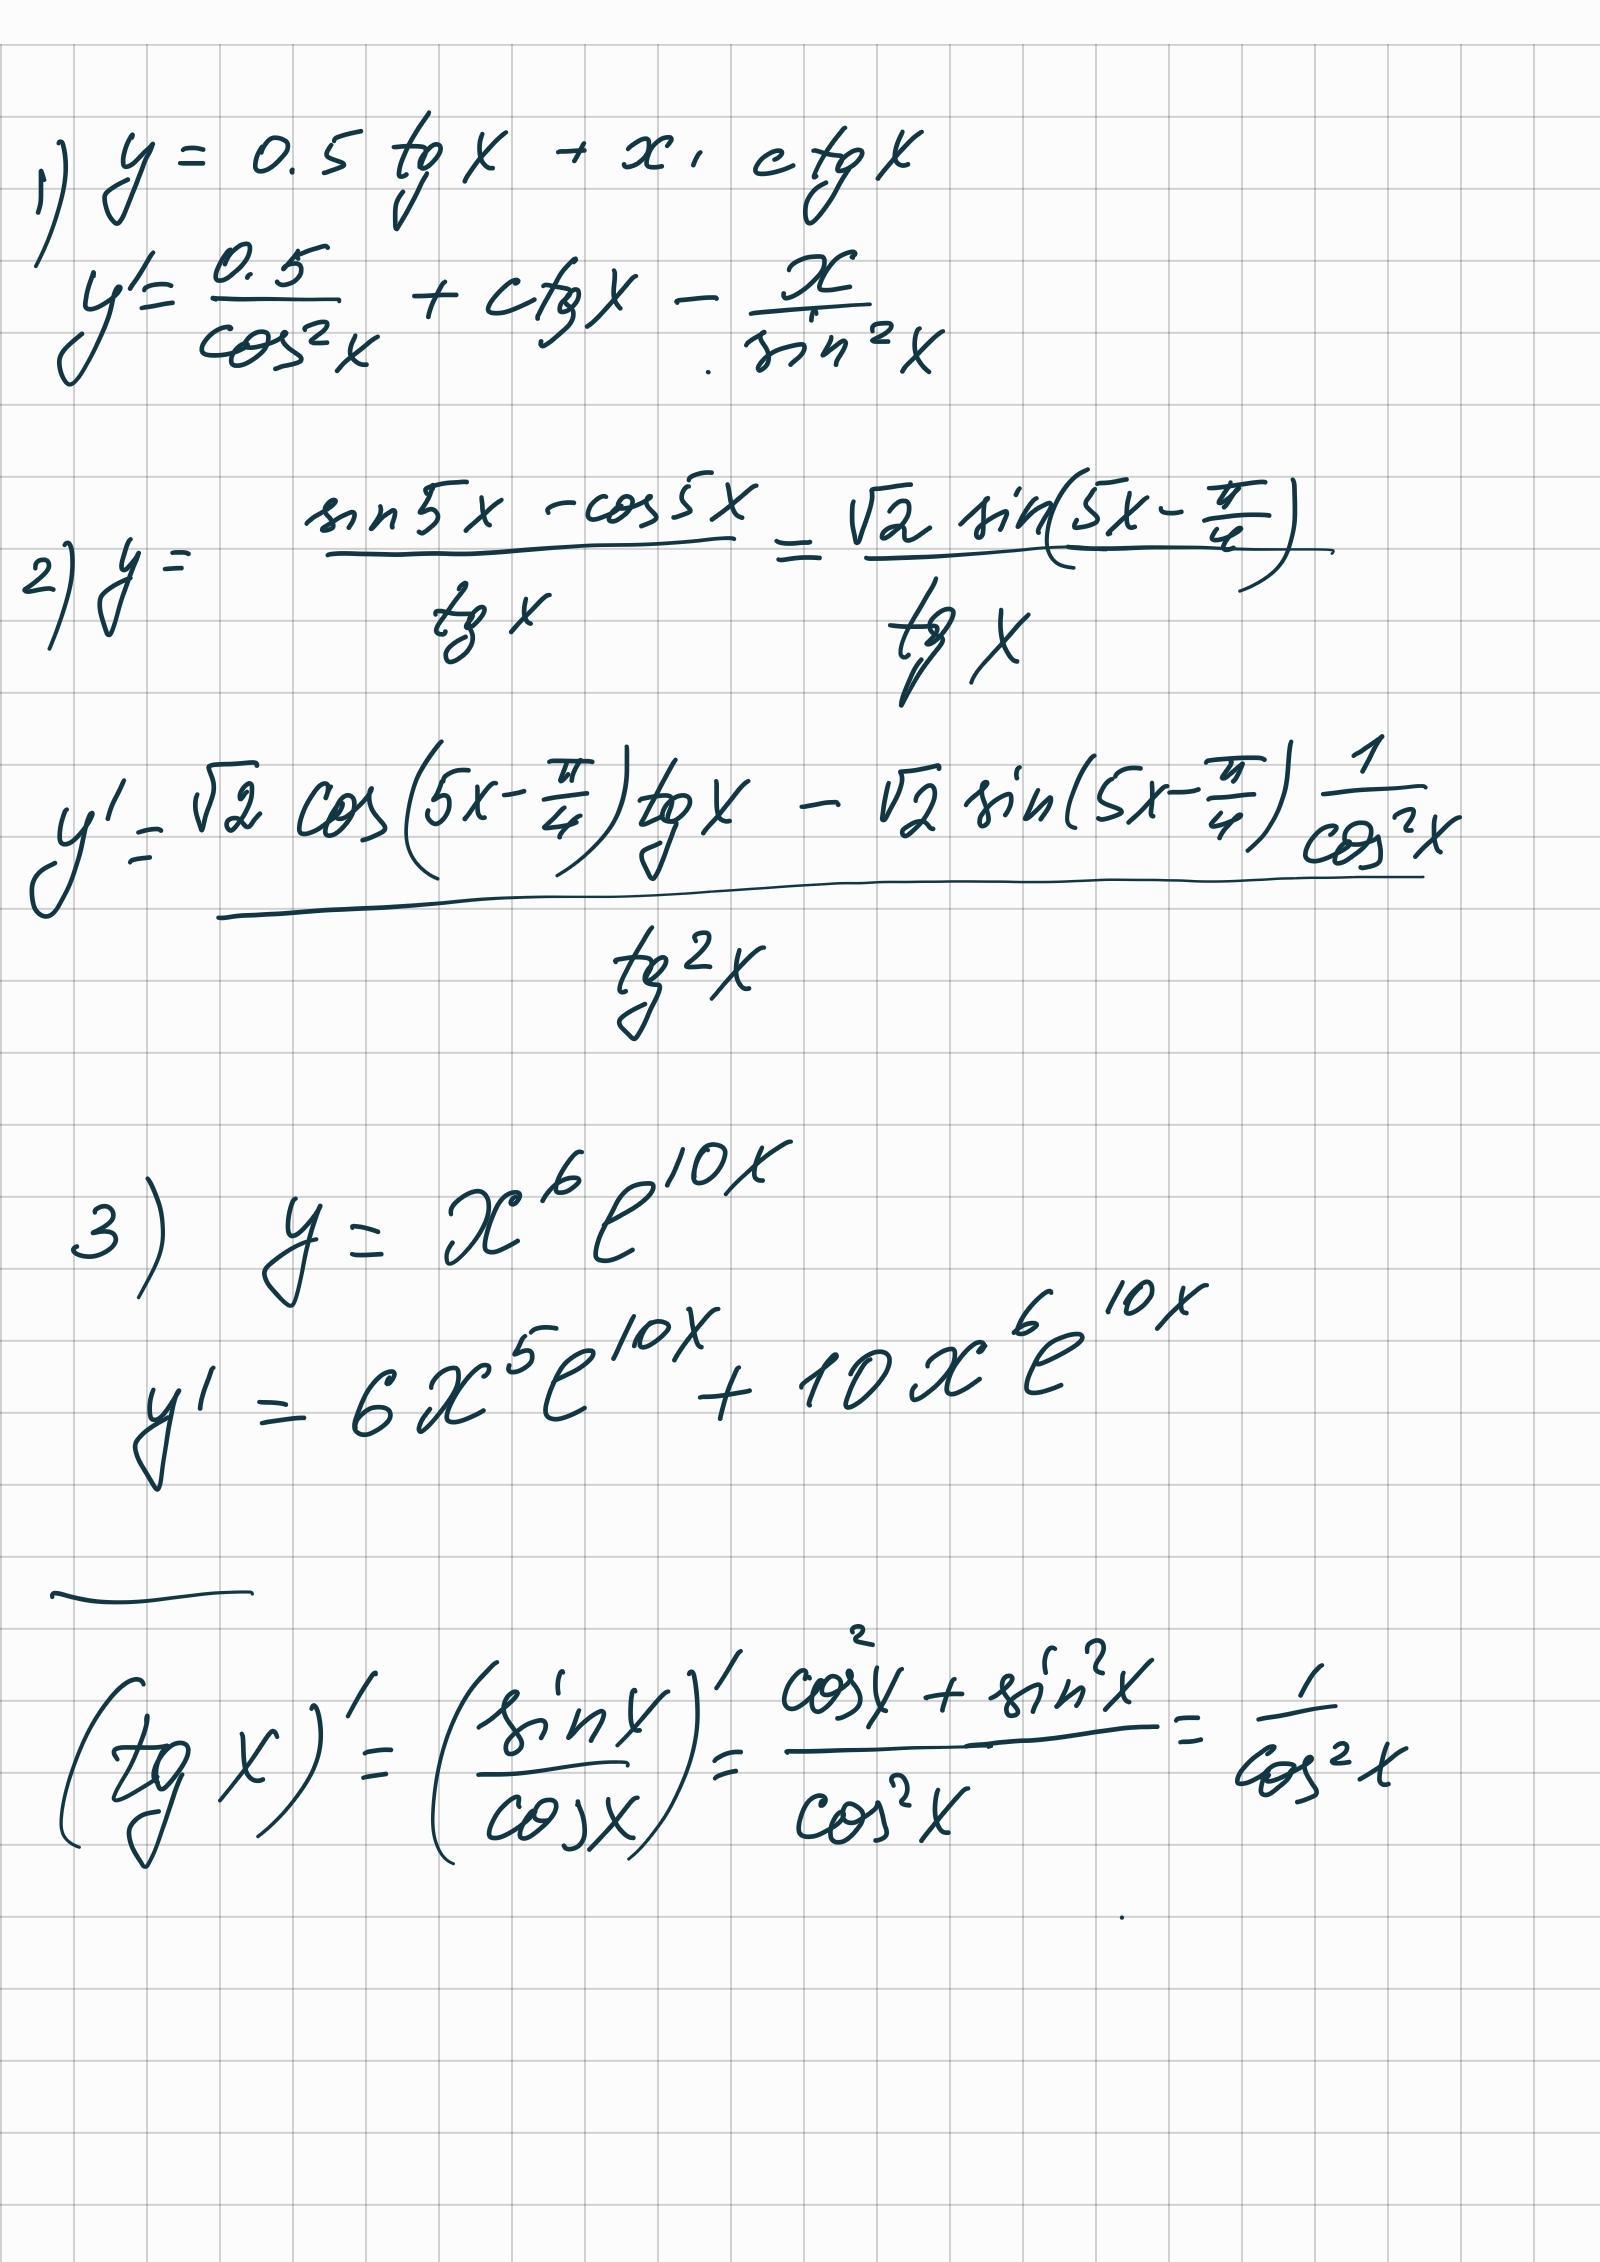 1) y = 0.5 tg x + x · ctg x
y' = 0.5/cos²x + ctg x − x/sin²x
2) y = (sin 5x − cos 5x)/tg x = √2 sin(5x − π/4)/tg x
y' = (√2 cos(5x − π/4) tg x − √2 sin(5x − π/4) 1/cos²x)/tg²x
3) y = x⁶ e^(10x)
y' = 6x⁵e^(10x) + 10x⁶e^(10x)
(tg x)' = (sin x/cos x)' = (cos²x + sin²x)/cos²x = 1/cos²x